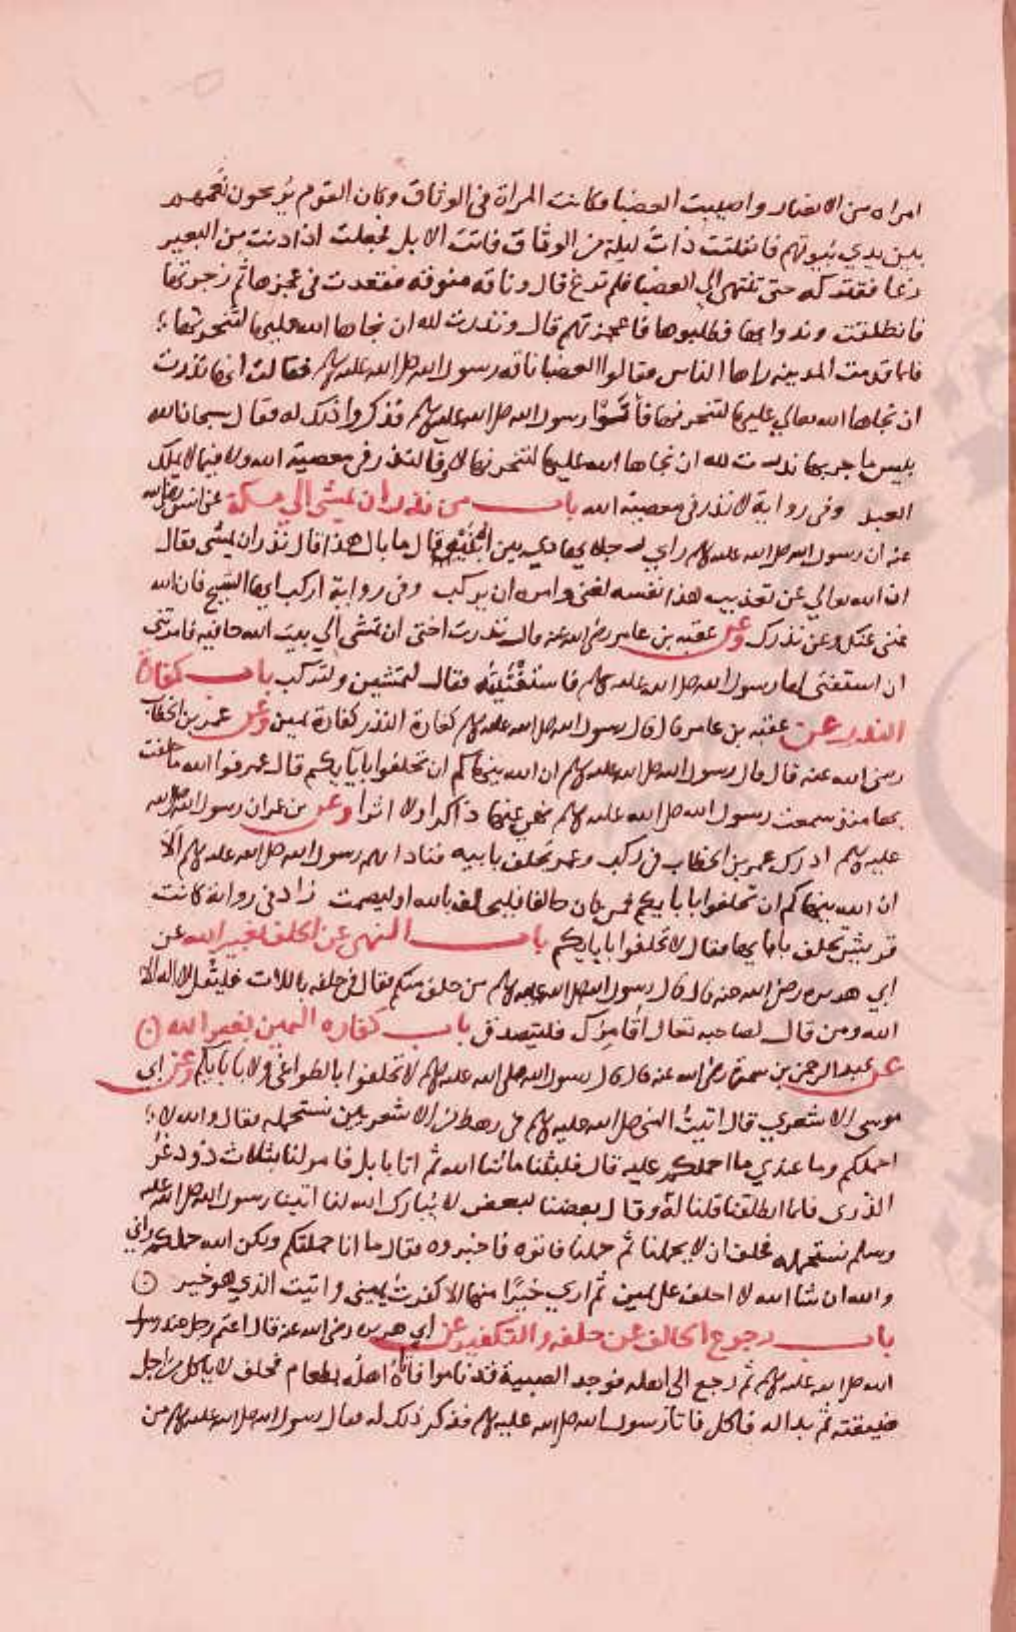 امراه من الانصار واصيبت العضبا فكانت المراة في الوثاق وكان القوم يُريحون نَعَمهم
بين يدي بيوتهم فانفلتت ذات ليلة من الوثاق فاتت الابل فجعلت اذا دنت من البعير
رغا فتتركه حتى تنتهي الي العضبا فلم ترغ قال وناقه منوقه فقعدت في عجزها ثم زجرتها
فانطلقت ونذروا بها فطلبوها فاعجزتهم قال ونذرت لله ان نجاها الله عليها لتنحرنها
فلما قدمت المدينه راها الناس فقالوا العضبا ناقه رسول الله صلى الله عليه وسلم فقالت انها نذرت
ان نجاها الله تعالي عليها لتنحرنها فأتوا رسول الله صلى الله عليه وسلم فذكروا ذلك له فقال سبحان الله
بيس ما جزتها نذرت لله ان نجاها الله عليها لتنحرنها لا وفا لنذر في معصية الله ولا فيما لا يملك
العبد وفي رواية لا نذر في معصية الله باب من نذر ان يمشي الي مكة عن انس رضي الله
عنه ان رسول الله صلى الله عليه وسلم راي رجلا يهادي بين ابنيه قال ما بال هذا قال نذر ان يمشي فقال
ان الله تعالي عن تعذيب هذا نفسه لغني وامره ان يركب وفي رواية اركب ايها الشيخ فان الله
غني عنك وعن نذرك وعن عقبه بن عامر رضي الله عنه قال نذرت اختي ان تمشي الي بيت الله حافيه فامرتني
ان استفتي لها رسول الله صلى الله عليه وسلم فاستفتيته فقال لتمشين ولتركب باب كفارة
النذر عن عقبه بن عامر قال قال رسول الله صلى الله عليه وسلم كفارة النذر كفارة يمين وعن عمر بن الخطاب
رضي الله عنه قال قال رسول الله صلى الله عليه وسلم ان الله ينهاكم ان تحلفوا بابايكم قال عمر فوا الله ما حلفت
بها منذ سمعت رسول الله صلى الله عليه وسلم نهي عنها ذاكرا ولا اثرا وعن بن عمر ان رسول الله صلى الله
عليه وسلم ادرك عمر بن الخطاب في ركب وعمر يحلف بابيه فناداهم رسول الله صلى الله عليه وسلم الا
ان الله ينهاكم ان تحلفوا بابايكم فمن كان حالفا فليحلف بالله او ليصمت زاد في رواية كانت
قريش تحلف بابايها فقال لا تحلفوا بابايكم باب النهي عن الحلف بغير الله عن
ابي هريره رضي الله عنه قال قال رسول الله صلى الله عليه وسلم من حلف منكم فقال في حلفه باللات فليقل لا اله الا
الله ومن قال لصاحبه تعال اقامرك فليتصدق باب كفاره اليمين بغير الله
عن عبد الرحمن بن سمرة رضي الله عنه قال قال رسول الله صلى الله عليه وسلم لا تحلفوا بالطواغي ولا بابايكم وعن ابي
موسي الاشعري قال اتيت النبي صلى الله عليه وسلم في رهط من الاشعريين نستحمله فقال والله لا
احملكم وما عندي ما احملكم عليه قال فلبثنا ما شا الله ثم اتا بابل فامر لنا بثلاث ذود غر
الذرى فلما انطلقنا قلنا او قال بعضنا لبعض لا يُبارك الله لنا اتينا رسول الله صلى الله عليه
وسلم نستحمله فحلف ان لا يحملنا ثم حملنا فاتوه فاخبروه فقال ما انا حملتكم ولكن الله حملكم واني
والله ان شا الله لا احلف على يمين ثم اري خيرًا منها الا كفرت يميني واتيت الذي هو خير
باب رجوع الحالف عن حلفه والتكفير عن ابي هريره رضي الله عنه قال اعتم رجل عند رسول
الله صلى الله عليه وسلم ثم رجع الى اهله فوجد الصبية قد ناموا فاتاه اهله بطعام فحلف لا ياكل من اجل
صبيته ثم بدا له فاكل فاتا رسول الله صلى الله عليه وسلم فذكر ذلك له فقال رسول الله صلى الله عليه وسلم من